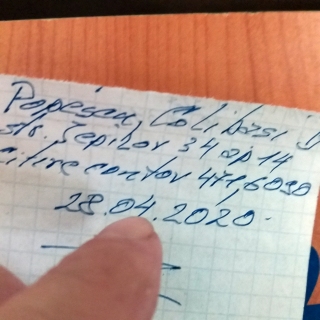 Popescu, Colibasi
str. Sepilor 34 ap 14
citire contor 471,6090
28.04.2020.